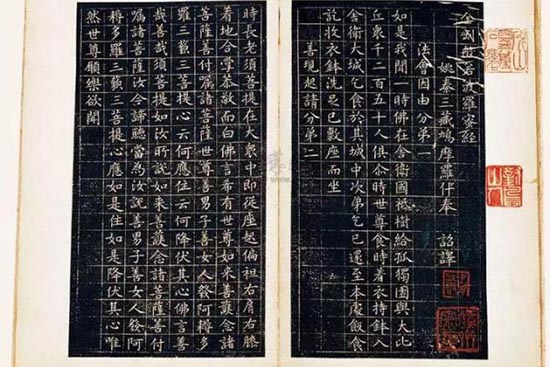 金剛般若波羅蜜經
姚秦三藏鳩摩羅什奉 詔譯
法會因由分第一
如是我聞一時佛在舍衛國祇樹給孤獨園與大比
丘衆千二百五十人俱尒時世尊食時着衣持鉢入
舍衛大城乞食於其城中次第乞已還至本處飯食
訖收衣鉢洗足已敷座而坐
善現起請分第二
時長老須菩提在大衆中即從座起偏袒右肩右膝
着地合掌恭敬而白佛言希有世尊如来善護念諸
菩薩善付囑諸菩薩世尊善男子善女人發阿耨多
羅三藐三菩提心云何應住云何降伏其心佛言善
哉善哉須菩提如汝所説如来善護念諸菩薩善付
囑諸菩薩汝今諦聽當為汝説善男子善女人發阿
耨多羅三藐三菩提心應如是住如是降伏其心唯
然世尊願樂欲聞